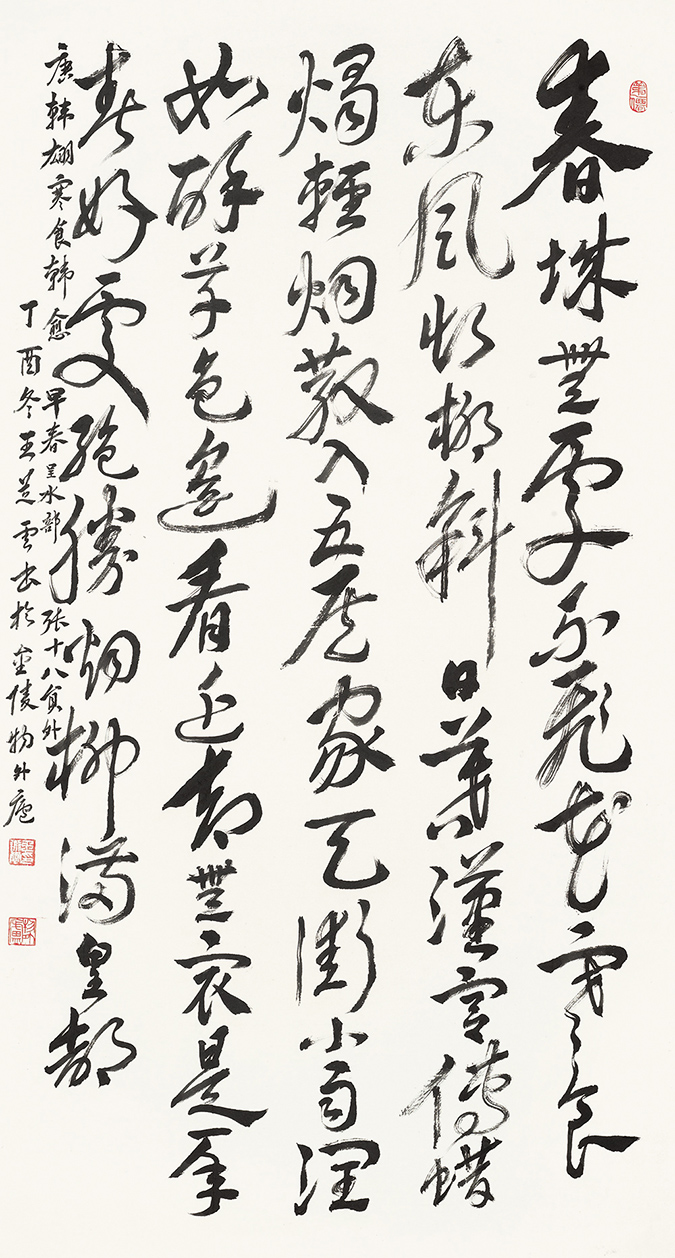 春城無處不飛花寒食
東風御柳斜日暮漢宮傳蠟
燭輕烟散入五侯家天街小雨潤
如酥草色遙看近却無最是一年
春好處絕勝烟柳滿皇都
唐韓翃寒食韓愈早春呈水部張十八員外
丁酉冬王雲書於金陵物外廬